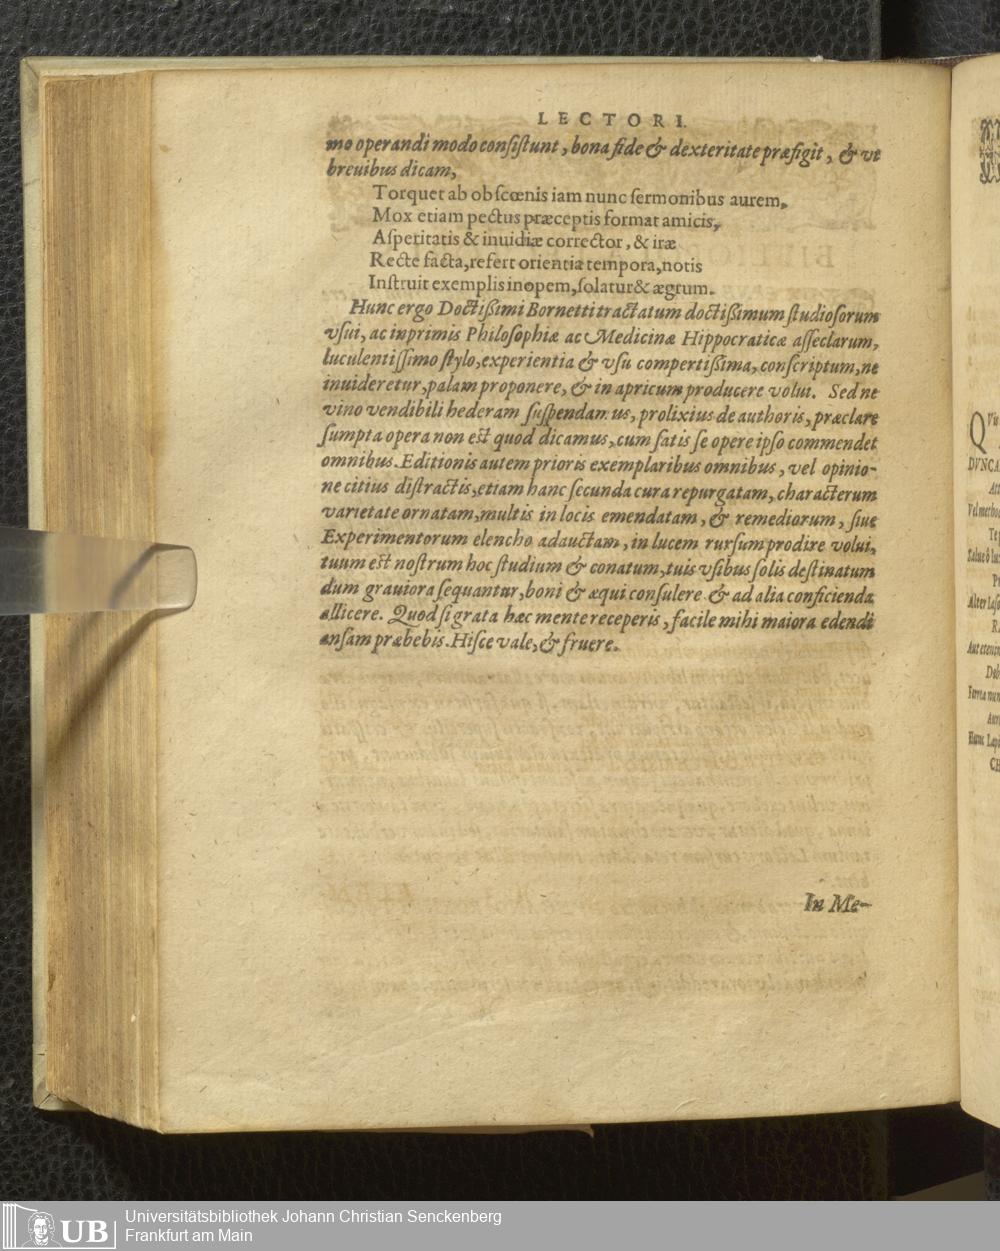 LECTORI.
mo operandi modo consistunt, bona fide & dexteritate præfigit, & vt
breuibus dicam,
Torquet ab obscœnis iam nunc sermonibus aurem,
Mox etiam pectus præceptis format amicis,
Asperitatis & inuidiæ corrector, & iræ
Recte facta, refert orientia tempora, notis
Instruit exemplis inopem, solatur & ægrum.
Hunc ergo Doctißimi Bornetti tractatum doctißimum studiosorum
vsui, ac inprimis Philosophiæ ac Medicinæ Hippocraticæ asseclarum,
luculentissimo stylo, experientia & vsu compertißima, conscriptum, ne
inuideretur, palam proponere, & in apricum producere volui. Sed ne
vino vendibili hederam suspendamus, prolixius de authoris, præclare
sumpta opera non est quod dicamus, cum satis se opere ipso commendet
omnibus. Editionis autem prioris exemplaribus omnibus, vel opinio-
ne citius distractis, etiam hanc secunda cura repurgatam, characterum
varietate ornatam, multis in locis emendatam, & remediorum, siue
Experimentorum elencho adauctam, in lucem rursum prodire volui,
tuum est nostrum hoc studium & conatum, tuis vsibus solis destinatum
dum grauiora sequantur, boni & æqui consulere & ad alia conficienda
allicere. Quod si grata hæc mente receperis, facile mihi maiora edendi
ansam præbebis. Hisce vale, & fruere.
In Me-
Q Vis
DVNCA
Att
Vel metho
Te p
Salue ô lu
Alter Laſ
Aut etenim
Deb
Ferrea nun
Aur
Hunc Lapi
CH
UB
Universitätsbibliothek Johann Christian Senckenberg
Frankfurt am Main